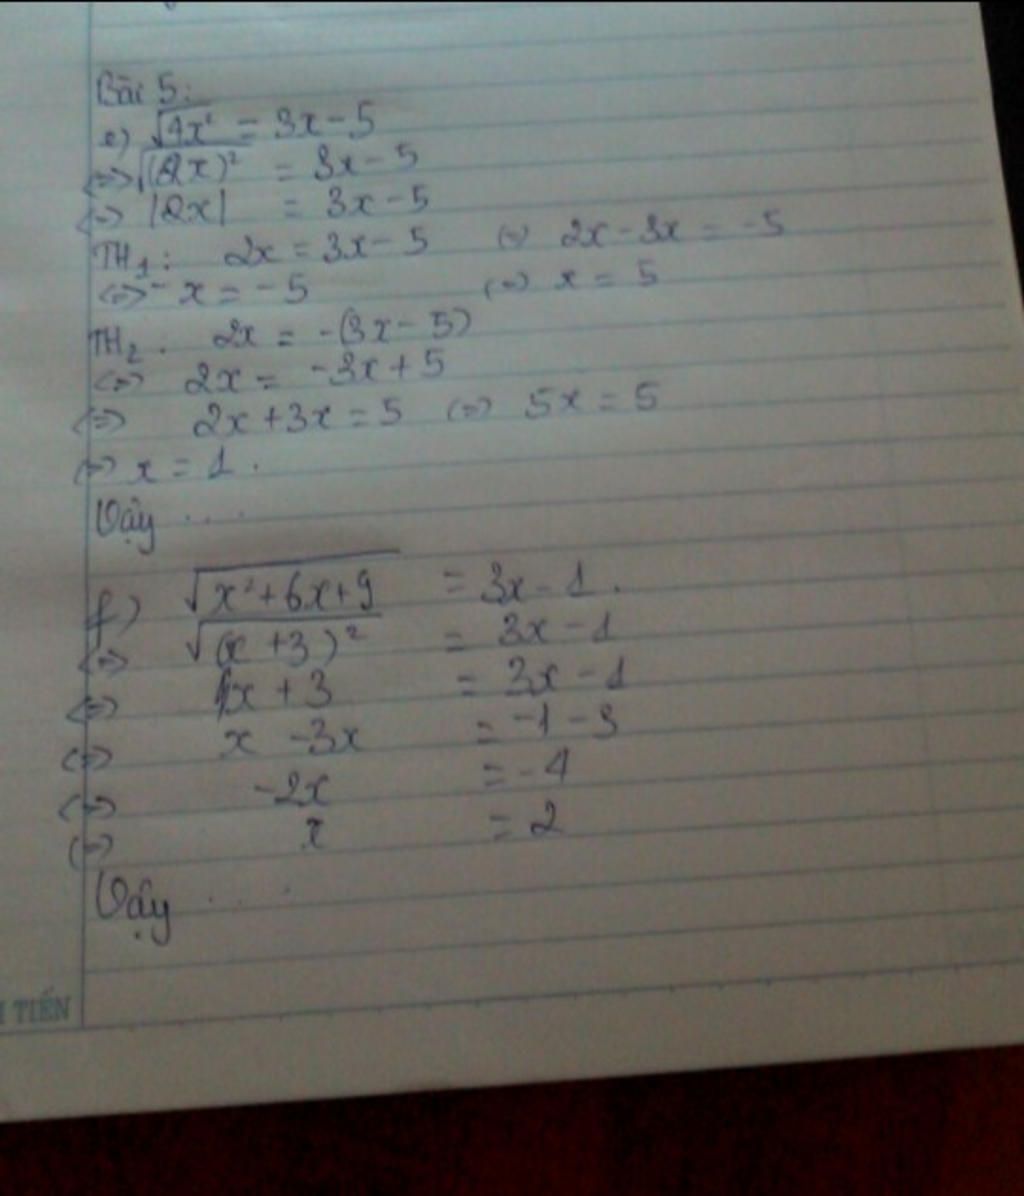 Bài 5:
e) √4x² = 3x - 5
<=> √(2x)² = 3x - 5
<=> |2x| = 3x - 5
TH1: 2x = 3x - 5 <=> 2x - 3x = -5
<=> -x = -5 <=> x = 5
TH2. 2x = -(3x - 5)
<=> 2x = -3x + 5
<=> 2x + 3x = 5 <=> 5x = 5
<=> x = 1.
Vậy ....
f) √x² + 6x + 9 = 3x - 1.
<=> √(x + 3)² = 3x - 1
<=> x + 3 = 3x - 1
<=> x - 3x = -1 - 3
<=> -2x = -4
<=> x = 2
Vậy ....
TIẾN